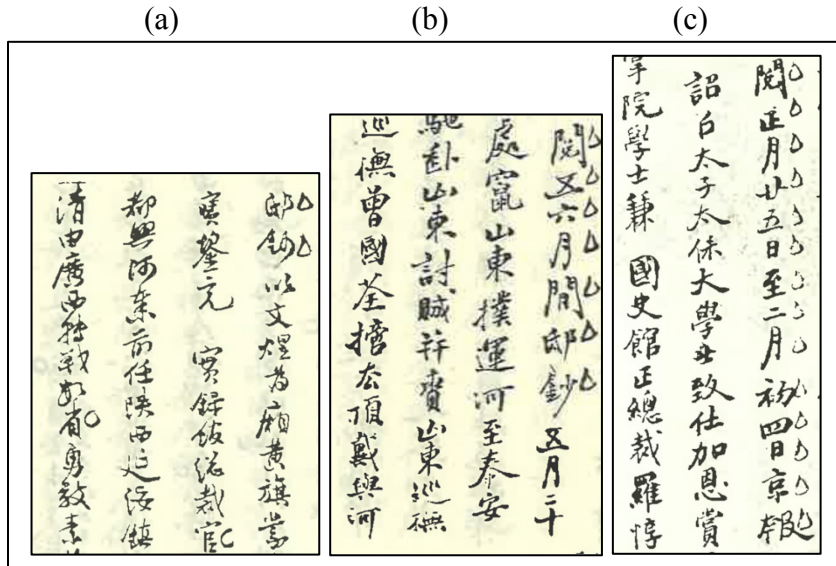 (a)
(b)
(c)
邸鈔以文煜為廂黃旗蒙
寶鋆充 實錄館總裁官
都興阿奏前任陝西延綏鎮
清由廣西轉戰數省勇敢素
閱五六月間邸鈔 五月二十
處竄山東撲運河至泰安
馳赴山東討賊并責山東巡撫
巡撫曾國荃摘去頂戴與河
閱正月廿五日至二月初四日京報
詔太子太保大學士致仕加恩賞
掌院學士兼 國史館正總裁羅惇